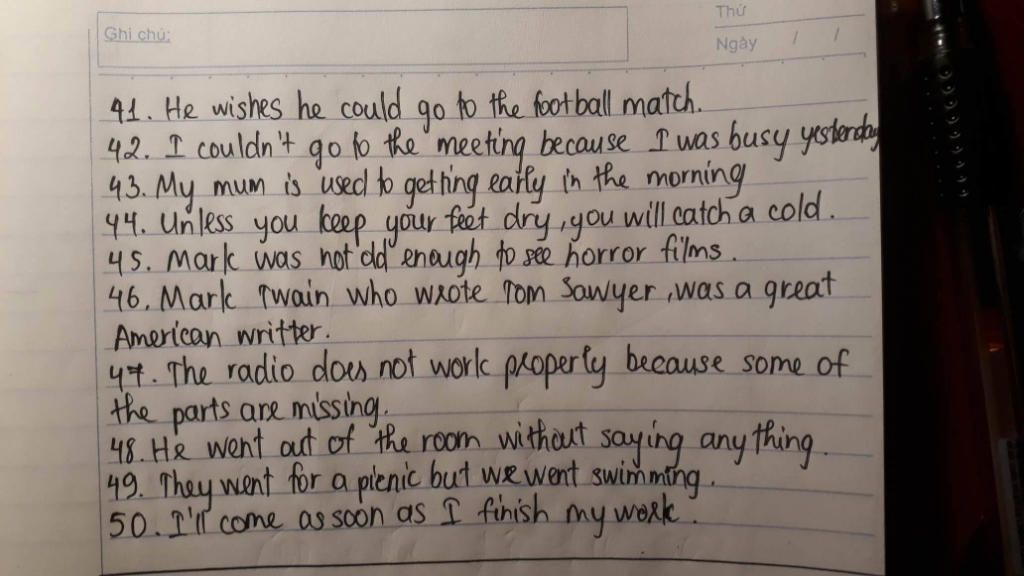 Ghi chú:
Thứ
Ngày / /
41. He wishes he could go to the football match.
42. I couldn't go to the meeting because I was busy yesterday
43. My mum is used to getting early in the morning
44. Unless you keep your feet dry, you will catch a cold.
45. Mark was not old enough to see horror films.
46. Mark Twain who wrote Tom Sawyer, was a great
American writter.
47. The radio does not work properly because some of
the parts are missing.
48. He went out of the room without saying anything.
49. They went for a picnic but we went swimming.
50. I'll come as soon as I finish my work.